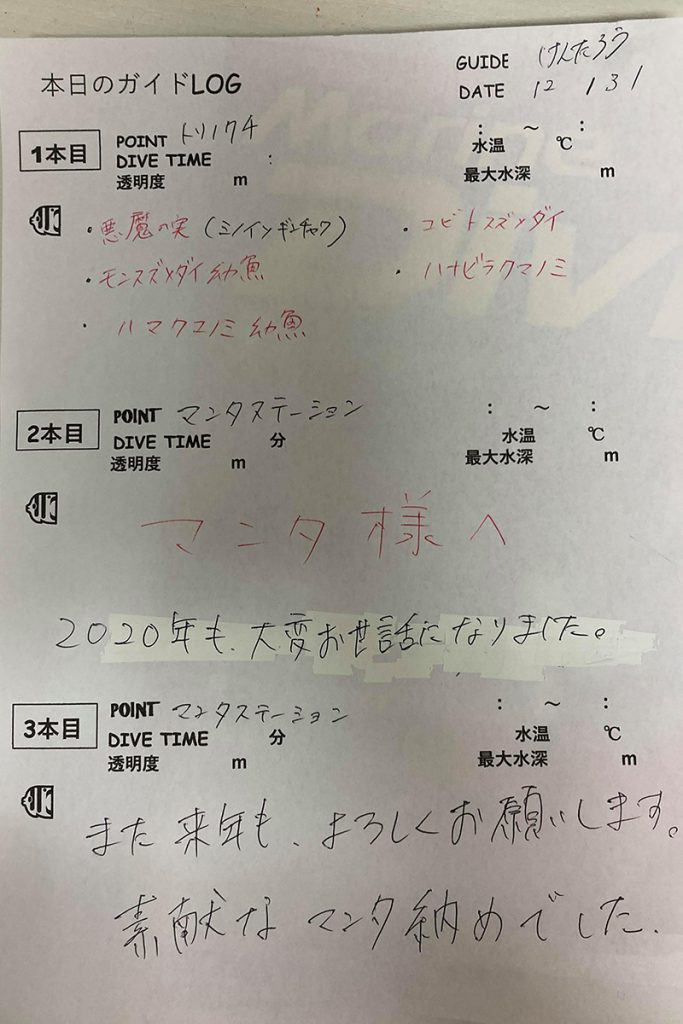 本日のガイドLOG
GUIDE けんたろう
DATE 12 / 31
1本目
POINT トリノクチ
DIVE TIME :
透明度 m
: ~ :
水温 ℃
最大水深 m
・悪魔の実(ミノイソギンチャク)
・コビトスズメダイ
・モンスズメダイ幼魚
・ハナビラクマノミ
・ハマクマノミ幼魚
2本目
POINT マンタステーション
DIVE TIME 分
透明度 m
: ~ :
水温 ℃
最大水深 m
マンタ様へ
2020年も、大変お世話になりました。
3本目
POINT マンタステーション
DIVE TIME 分
透明度 m
: ~ :
水温 ℃
最大水深 m
また来年も、よろしくお願いします。
素献なマンタ納めでした.